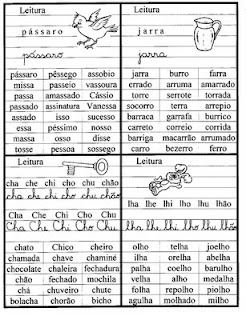 Leitura
pássaro
pássaro
pássaro pêssego assobio
missa passeio vassoura
passa amassado Cássio
passado assinatura Vanessa
assado isso sucesso
essa péssimo nosso
massa osso disse
tosse pessoa sossego
Leitura
jarra
jarra
jarra burro farra
errado arruma amarrado
torre serrote torrada
socorro terra arrepio
barraca garrafa burrico
carreto correio corrida
barriga macarrão arrumado
carro bezerro ferro
Leitura
cha che chi cho chu chão
cha che chi cho chu chão
Cha Che Chi Cho Chu
Cha Che Chi Cho Chu
chato Chico cheiro
chamada chave chaminé
chocolate chaleira fechadura
chão fechado mochila
chá chuveiro chute
bolacha chorão bicho
Leitura
lha lhe lhi lho lhu lhão
lha lhe lhi lho lhu lhão
olho telha joelho
ilha orelha abelha
palha coelho barulho
velha alho medalha
folha repolho piolho
agulha molhado milho